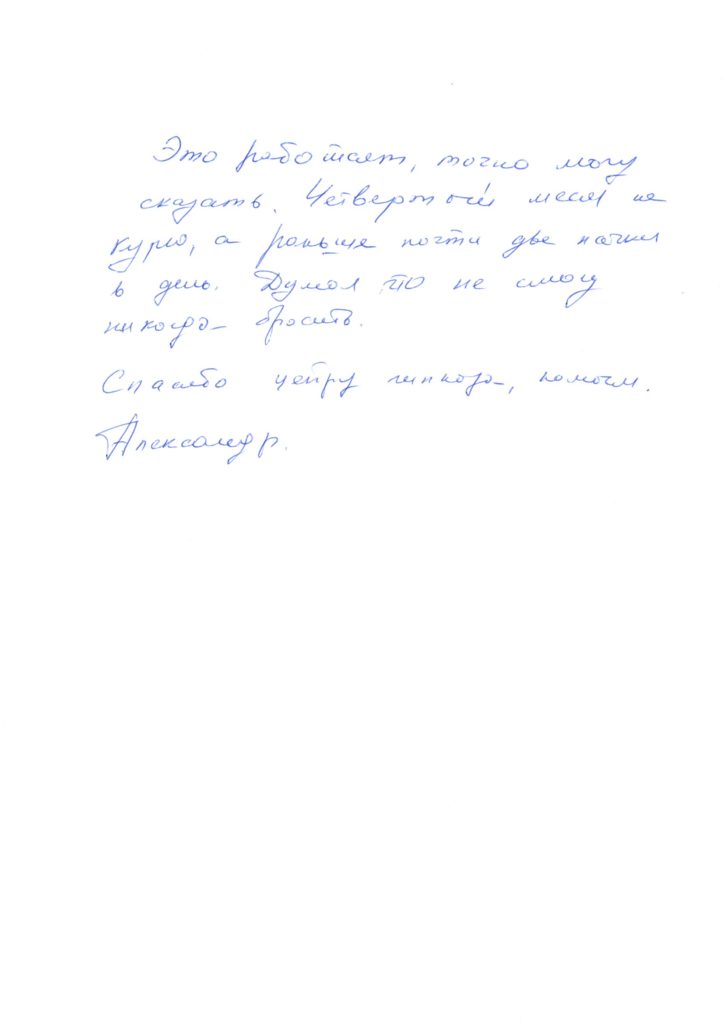 Это работает, точно могу
сказать. Четвертый месяц не
курю, а раньше почти две пачки
в день. Думал что не смогу
никогда бросить.
Спасибо центру гипноза, помогли.
Александр.